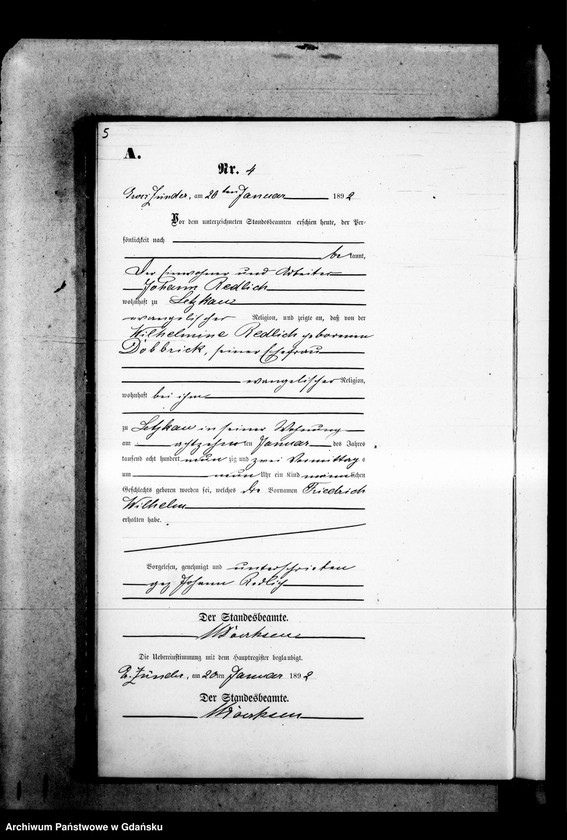 5
A.
Nr. 4
Groß Zünder, am 20ten Januar 1892
Vor dem unterzeichneten Standesbeamten erschien heute, der Per-
sönlichkeit nach
bekannt,
Der Einwohner und Arbeiter
Johann Redlich
wohnhaft zu Letzkau
evangelischer Religion, und zeigte an, daß von der
Wilhelmine Redlich geborenen
Dobbrick, seiner Ehefrau
evangelischer Religion,
wohnhaft bei ihm
zu Letzkau in seiner Wohnung
am achtzehnten Januar des Jahres
tausend acht hundert neunzig und zwei Vormittags
um neun Uhr ein Kind männlichen
Geschlechts geboren worden sei, welches die Vornamen Friedrich
Wilhelm
erhalten habe.
Vorgelesen, genehmigt und unterschrieben
gez Johann Redlich
Der Standesbeamte.
Die Uebereinstimmung mit dem Hauptregister beglaubigt.
G. Zünder, am 20ten Januar 1892
Der Standesbeamte.
Archiwum Państwowe w Gdańsku